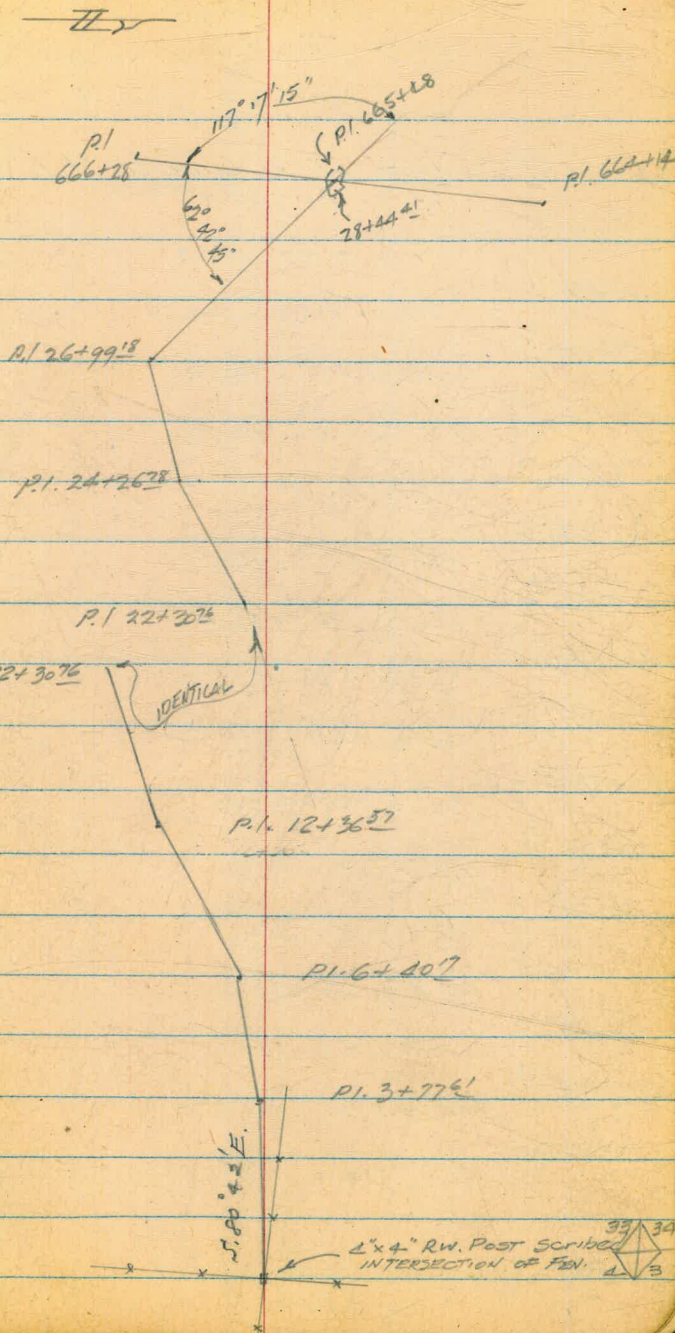 117° 17' 15"
P.I. 665+48
P.I
666+28
P.I. 664+14
28+44 41
62°
42'
45"
P.I 26+99 18
P.I. 24+26 78
P.I 22+30 76
22+30 76
IDENTICAL
P.I. 12+36 57
P.I. 6+40 17
P.I. 3+77 61
S. 80° 42' E.
4"x4" RW. POST SCRIBED
INTERSECTION OF FEN.
33 34
4 3